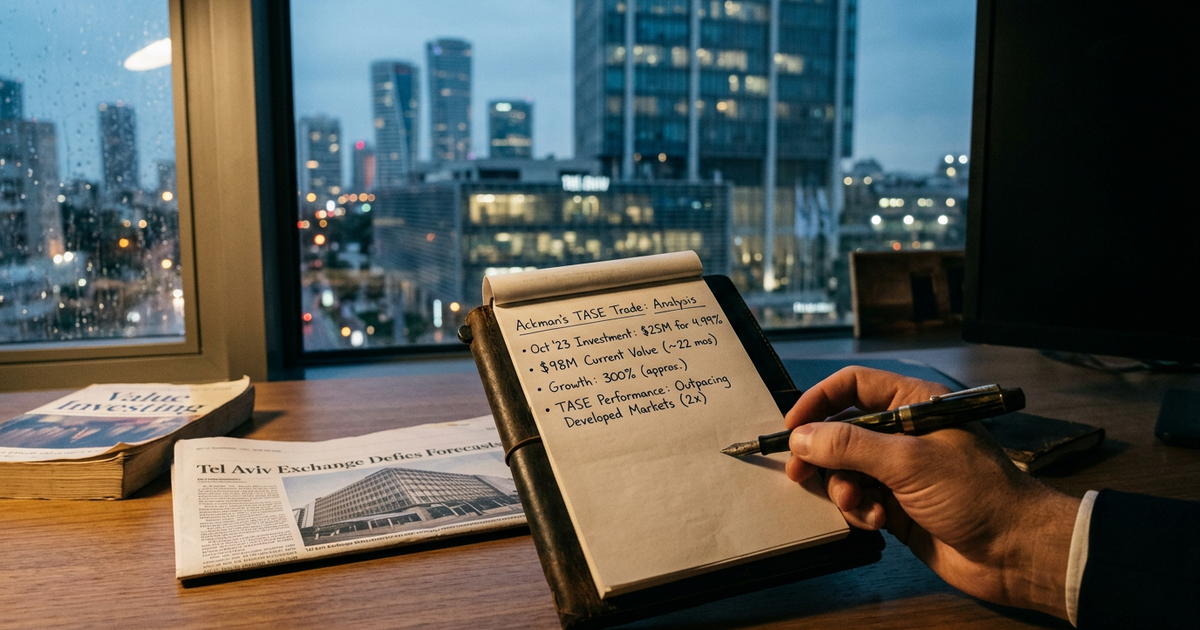 Ackman's TASE Trade: Analysis
• Oct '23 Investment: $25M for 4.99%
• $98M Current Value (~22 mos)
• Growth: 300% (approx.)
• TASE Performance: Outpacing
Developed Markets (2x)
Value
Investing
Tel Aviv Exchange Defies Forecasts